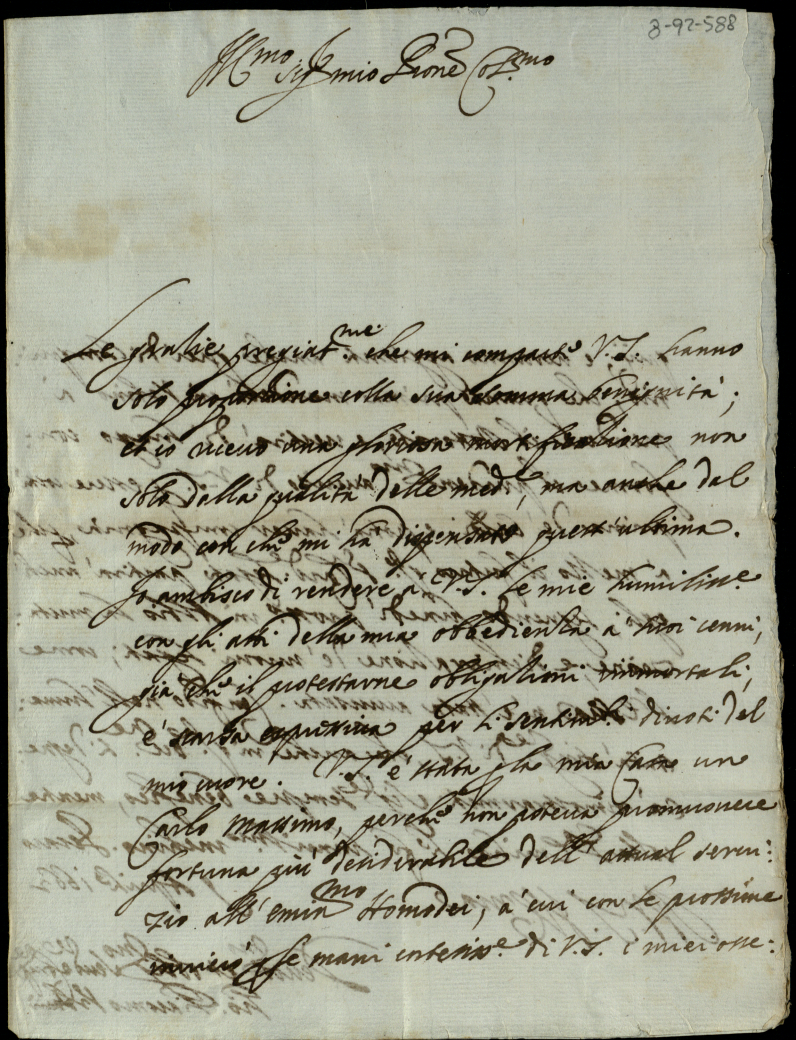 3-92-588
Ill.mo Sig.r mio P.rone Col.mo
Le gratie pregiat.me che mi comparte V.S. hanno
solo proportione colla sua somma benignità;
et io ricevo una gloriosa mortificatione non
solo dalla qualità delle med.e, ma anche dal
modo con che mi ha dispensato quest'ultima.
Io ambisco di rendere a V.S. le mie humiliss.e
con gli atti della mia obbedienza a' suoi cenni,
già che il protestarne obligationi immortali,
è scarsa espressiva per li sentim.ti divoti del
mio cuore. V.S. è stata alla mia Casa un
Carlo Massimo, perche non poteva promuovere
fortuna più desiderabile dell'attual servi:
zio all'Emin.mo Homodei, a cui con le prossime
invierò per le mani cortesiss.e di V.S. i miei osse: